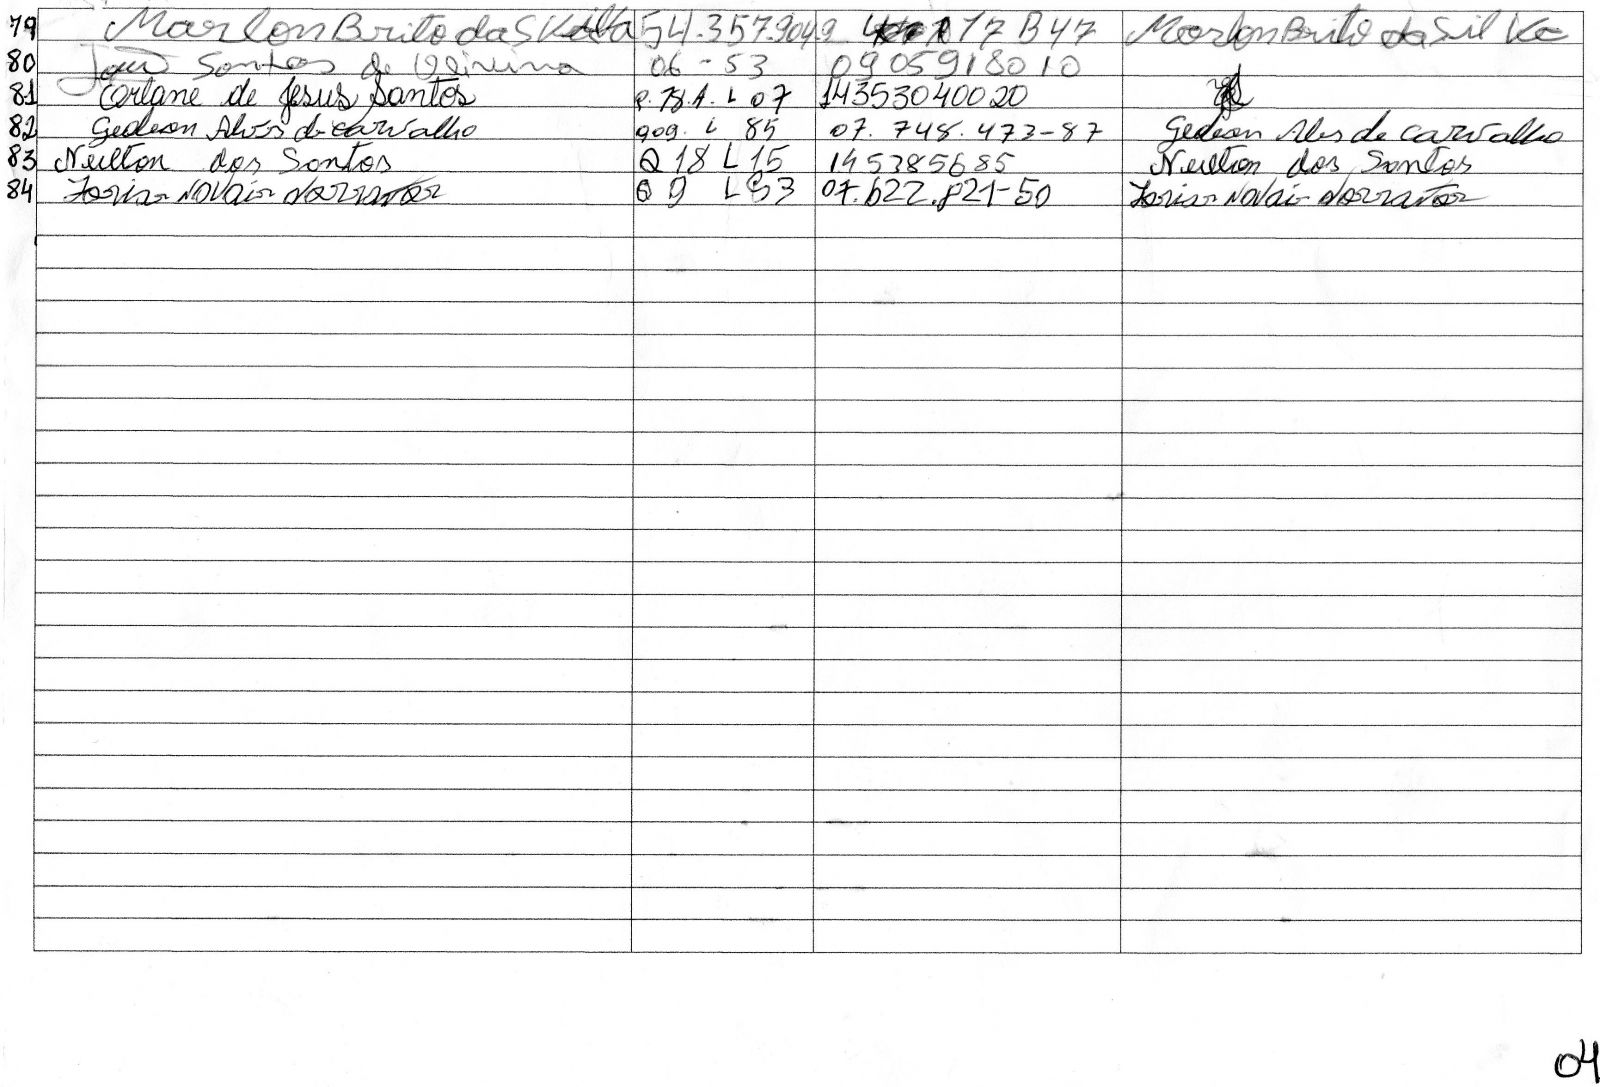 79 Marlon Brito da Silva 54.357.904.9 17 B47 Marlon Brito da Silva
80 Santos de 06-53 0905918010
81 Carlane de Jesus Santos Q.78.A. L 07 14353040020
82 Gedeon Alves de carvalho qog. L 85 07. 748. 473-87 Gedeon Alves de carvalho
83 Neilton dos Santos Q 18 L 15 145385685 Neilton dos Santos
84 Novais Q 9 L 53 07.622.821-50 Novais
04